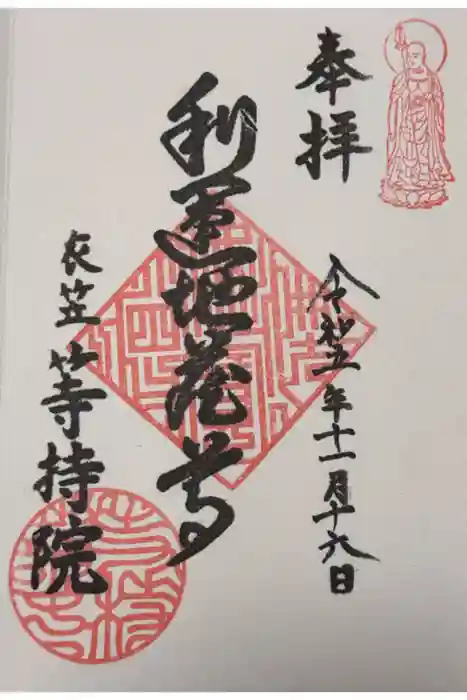 奉拝
令和五年十一月十六日
利運地蔵尊
衣笠等持院